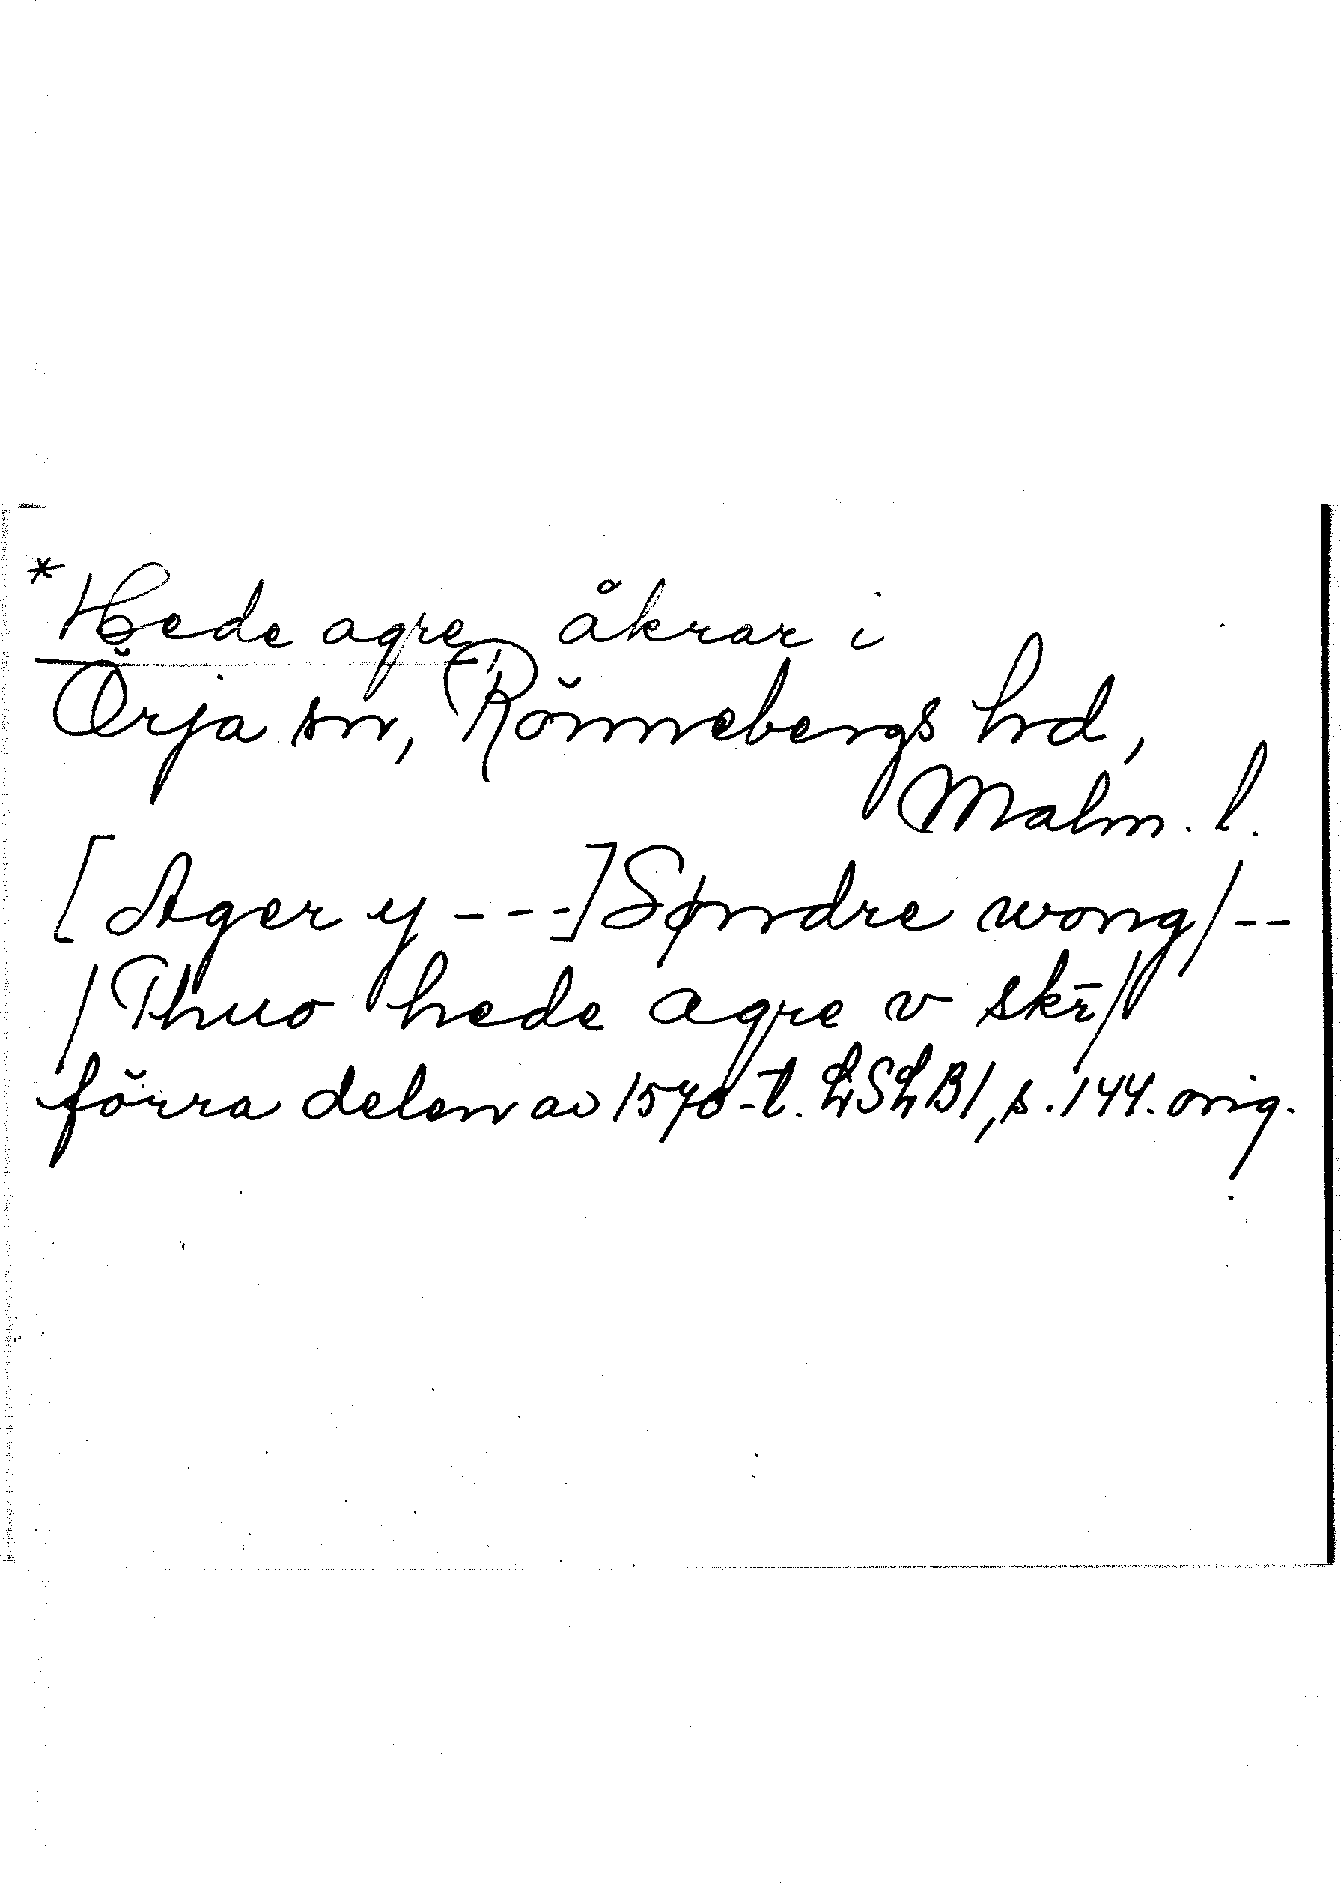 *Hede agre, åkrar i
Örja sn, Rönnebergs hd,
Malm. l.
[Ager y ---] Søndre wong/--
/Thuo hede agre v skr̄/
förra delen av 1570-t. LSLB1, s. 144. orig.